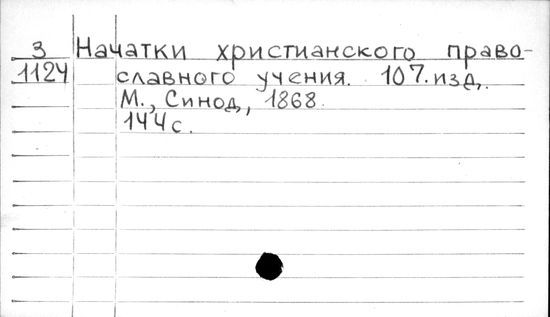 З Начатки христианского право-
1124 славного учения. 107. изд.
М., Синод, 1868.
144 с.